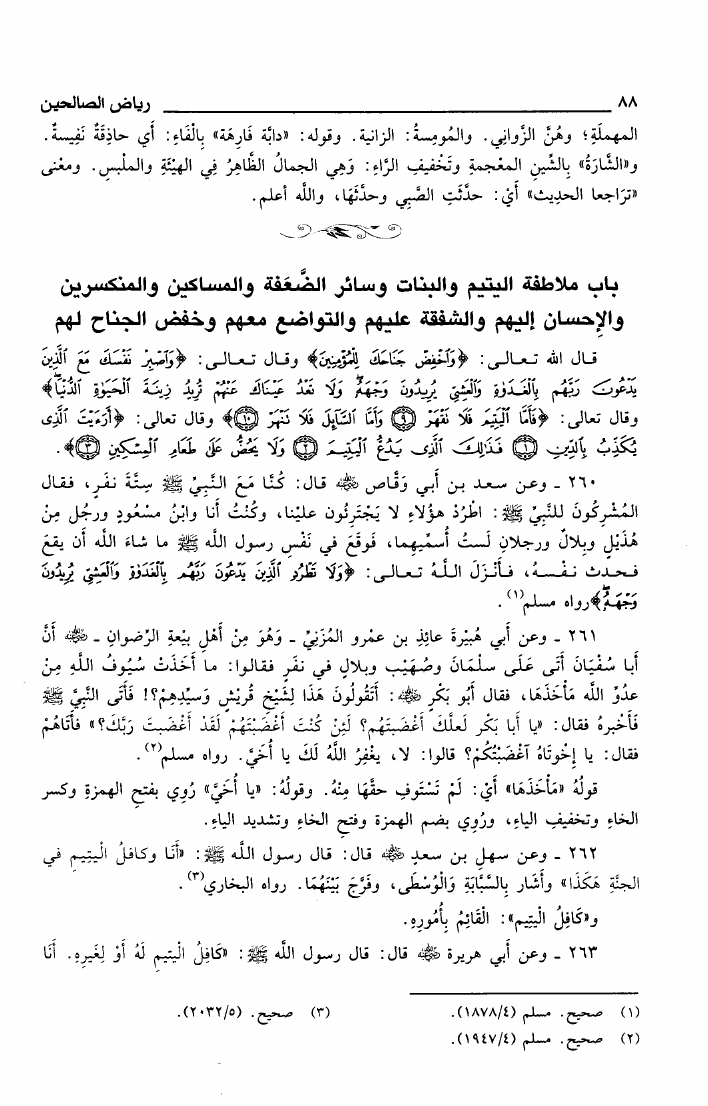 ٨٨ رياض الصالحين
المهملَةِ؛ وهُنَّ الزَّواني. والمُومِسةُ: الزانية. وقوله: «دابَّة فَارِهَة» بِالْفَاءِ: أَي حاذِقَةٌ نَفِيسةٌ.
و«الشَّارَةُ» بِالشِّينِ المعْجمةِ وتَخْفيفِ الرَّاءِ: وَهِي الجمالُ الظَّاهِرُ فِي الهيْئَةِ والملْبسِ. ومعْنى
«ترَاجعا الحديث» أَيْ: حدَّثَتِ الصَّبِي وحدَّثَهَا، واللَّه أعلم.
باب ملاطفة اليتيم والبنات وسائر الضَّعَفة والمساكين والمنكسرين
والإحسان إليهم والشفقة عليهم والتواضع معهم وخفض الجناح لهم
قـال الله تـعـالـى: ﴿وَٱخْفِضْ جَنَاحَكَ لِلْمُؤْمِنِينَ﴾ وقـال تـعـالـى: ﴿وَٱصْبِرْ نَفْسَكَ مَعَ ٱلَّذِينَ
يَدْعُونَ رَبَّهُم بِٱلْغَدَوٰةِ وَٱلْعَشِيِّ يُرِيدُونَ وَجْهَهُۥۖ وَلَا تَعْدُ عَيْنَاكَ عَنْهُمْ تُرِيدُ زِينَةَ ٱلْحَيَوٰةِ ٱلدُّنْيَاۖ﴾
وقال تعالى: ﴿فَأَمَّا ٱلْيَتِيمَ فَلَا تَقْهَرْ ۝٩ وَأَمَّا ٱلسَّآئِلَ فَلَا تَنْهَرْ ۝١٠﴾ وقال تعالى: ﴿أَرَءَيْتَ ٱلَّذِى
يُكَذِّبُ بِٱلدِّينِ ۝١ فَذَٰلِكَ ٱلَّذِى يَدُعُّ ٱلْيَتِيمَ ۝٢ وَلَا يَحُضُّ عَلَىٰ طَعَامِ ٱلْمِسْكِينِ ۝٣﴾.
٢٦٠ ـ وعن سعد بن أبي وَقَّاص رضي الله عنه قال: كُنَّا مَعَ النَّبِيِّ ﷺ سِتَّةَ نفَرٍ، فقال
المُشْرِكُونَ للنَّبِيِّ ﷺ: اطْرُدْ هؤُلاءِ لا يَجْتَرِئُون عليْنا، وكُنْتُ أنا وابْنُ مسْعُودٍ ورجُل مِنْ
هُذَيْلٍ وبِلالٌ ورجلانِ لَستُ أُسمِّيهِما، فوقَعَ في نَفْسِ رسول اللَّه ﷺ ما شاءَ اللَّه أن يقعَ
فحدث نفْسهُ، فأَنْزَلَ اللَّهُ تعالى: ﴿وَلَا تَطْرُدِ ٱلَّذِينَ يَدْعُونَ رَبَّهُم بِٱلْغَدَوٰةِ وَٱلْعَشِيِّ يُرِيدُونَ
وَجْهَهُۥۖ﴾رواه مسلم(١).
٢٦١ ـ وعن أبي هُبيْرةَ عائِذِ بن عمْرو المُزَنِيِّ ـ وَهُوَ مِنْ أَهْلِ بيْعةِ الرِّضوانِ ـ رضي الله عنه أَنَّ
أبا سُفْيَانَ أَتَى عَلَى سلْمَانَ وصُهَيْب وبلالٍ في نفَرٍ فقالوا: ما أَخَذَتْ سُيُوفُ اللَّهِ مِنْ
عدُوِّ اللَّه مَأْخَذَهَا، فقال أَبُو بَكْرٍ رضي الله عنه: أَتَقُولُونَ هَذَا لِشَيْخِ قُريْشٍ وَسيِّدِهِمْ؟! فَأَتَى النَّبِيَّ ﷺ
فَأَخْبرهُ فقال: «يا أَبا بَكْر لَعلَّكَ أَغْضَبتَهُم؟ لَئِنْ كُنْتَ أَغْضَبْتَهُمْ لَقَدْ أَغْضَبتَ رَبَّكَ؟» فأَتَاهُمْ
فقال: يا إِخْوتَاهُ آغْضَبْتُكُمْ؟ قالوا: لا، يغْفِرُ اللَّهُ لَكَ يا أُخَيَّ. رواه مسلم(٢).
قولُهُ «مَأْخَذَهَا» أَيْ: لَمْ تَسْتَوفِ حقَّهَا مِنْهُ. وقولُهُ: «يا أُخَيَّ» رُوِي بفتحِ الهمزةِ وكسر
الخاءِ وتخفيفِ الياءِ، ورُوِي بضم الهمزة وفتحِ الخاءِ وتشديد الياءِ.
٢٦٢ ـ وعن سهلِ بن سعدٍ رضي الله عنه قال: قال رسول اللَّه ﷺ: «أَنَا وكافلُ الْيتِيمِ في
الجنَّةِ هَكَذَا» وأَشَار بِالسَّبَّابَةِ وَالْوُسْطَى، وفَرَّجَ بَيْنَهُمَا. رواه البخاري(٣).
و«كَافِلُ الْيتِيم»: القَائِمُ بِأُمُورِهِ.
٢٦٣ ـ وعن أبي هريرة رضي الله عنه قال: قال رسول اللَّه ﷺ: «كَافِلُ الْيتيمِ لَهُ أَوْ لِغَيرِهِ. أَنَا
(١) صحيح. مسلم (١٨٧٨/٤). (٣) صحيح. (٢٠٣٢/٥).
(٢) صحيح. مسلم (١٩٤٧/٤).